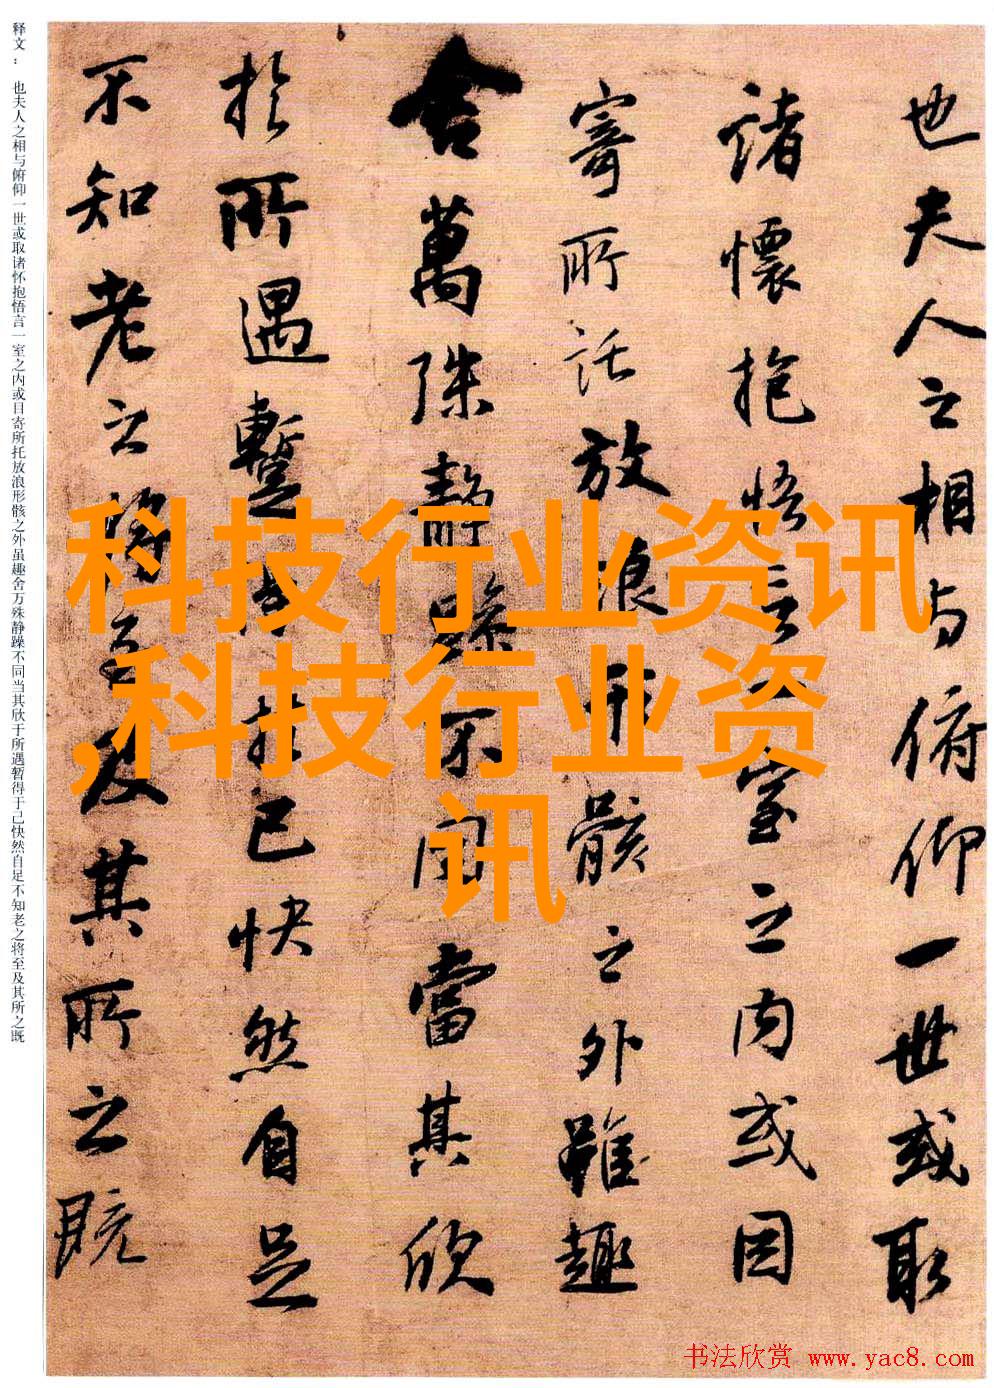 也夫人之相与俯仰一世或取
諸懷抱悟言一室之内或因
寄所託放浪形骸之外雖趣
舍萬殊静躁不同當其欣
於所遇蹔得於己快然自足
不知老之将至及其所之既
释文： 也夫人之相与俯仰一世或取诸怀抱悟言一室之内或目寄所托放浪形骸之外虽趣舍万殊静躁不同当其欣于所遇暂得于己快然自足不知老之将至及其所之既
科技行业资讯
,科技行业资
讯
书法欣赏 www.yac8.com